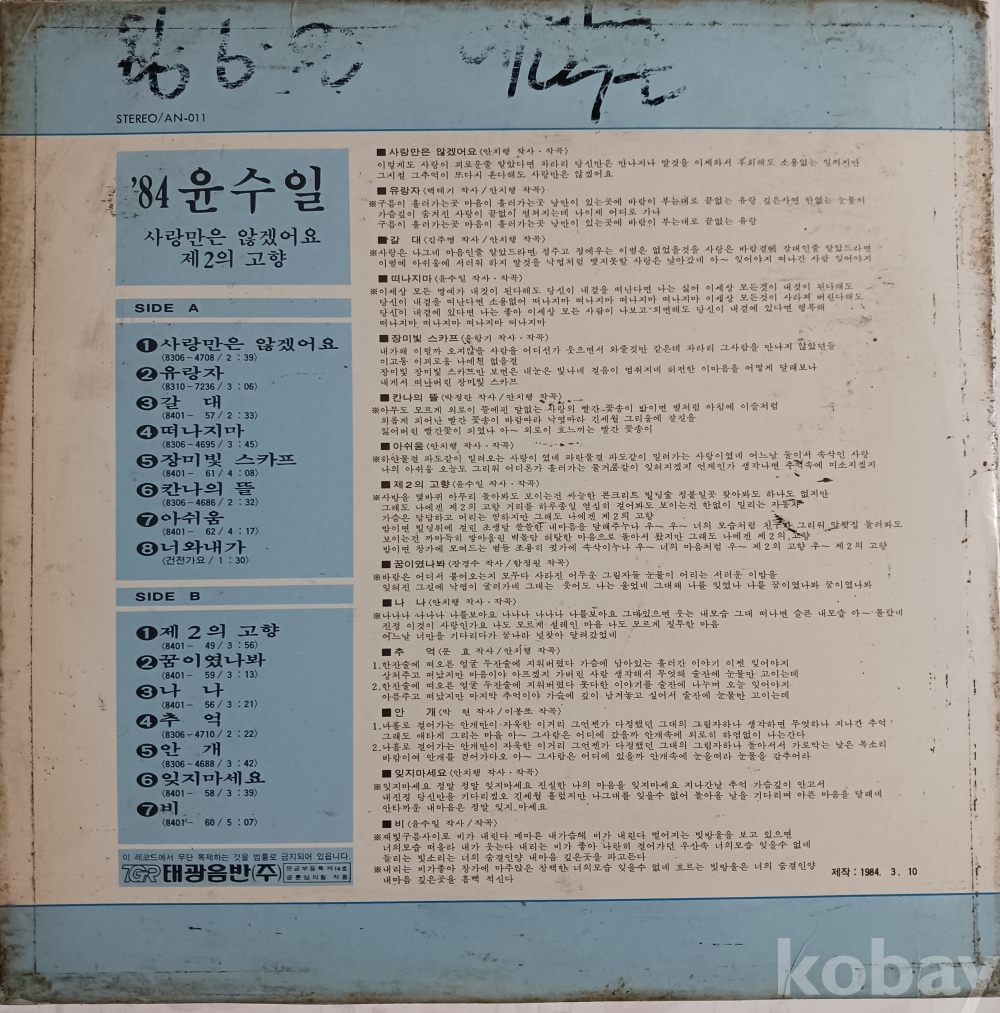 STEREO/AN-011
'84 윤수일
사랑만은 않겠어요
제2의 고향
SIDE A
❶사랑만은 않겠어요
(8306-4708 / 2 : 39)
❷유랑자
(8310-7236 / 3 : 06)
❸갈 대
(8401- 57 / 2 : 33)
❹떠나지마
(8306-4695 / 3 : 45)
❺장미빛 스카프
(8401- 61 / 4 : 08)
❻칸나의 뜰
(8306-4686 / 2 : 32)
❼아쉬움
(8401- 62 / 4 : 17)
❽너와내가
(건전가요 / 1 : 30)
SIDE B
❶제2의 고향
(8401- 49 / 3 : 56)
❷꿈이였나봐
(8401- 59 / 3 : 13)
❸나 나
(8401- 56 / 3 : 21)
❹추 억
(8306-4710 / 2 : 22)
❺안 개
(8306-4688 / 3 : 42)
❻잊지마세요
(8401- 58 / 3 : 39)
❼비
(8401- 60 / 5 : 07)
이 레코드에서 무단 복제하는 것을 법률로 금지되어 있읍니다.
TGR 태광음반(주)
■사랑만은 않겠어요(안치행 작사·작곡)
이렇게도 사랑이 괴로운줄 알았다면 차라리 당신만은 만나지나 말것을 이제와서 후회해도 소용없는 일이지만
그시절 그추억이 또다시 온다해도 사랑만은 않겠어요
■유랑자(백태기 작사 / 안치행 작곡)
※구름이 흘러가는곳 마음이 흘러가는곳 낭만이 있는곳에 바람이 부는대로 끝없는 유랑 깊은사연 한없는 눈물이
가슴깊이 숨겨진 사랑이 끝없이 펼쳐지는데 나이제 어디로 가나
구름이 흘러가는곳 마음이 흘러가는곳 낭만이 있는곳에 바람이 부는대로 끝없는 유랑
■갈 대(김주명 작사 / 안치행 작곡)
※사랑은 나그네 마음인줄 알았드라면 정주고 정에우는 이별은 없었을것을 사랑은 바람결에 갈대인줄 알았드라면
이별에 아쉬움에 서러워 하지 말것을 낙엽처럼 맺지못할 사랑은 날아갔네 아~ 잊어야지 떠나간 사람 잊어야지
■떠나지마(윤수일 작사·작곡)
※이세상 모든 명예가 내것이 된다해도 당신이 내곁을 떠난다면 나는 싫어 이세상 모든것이 내것이 된다해도
당신이 내곁을 떠난다면 소용없어 떠나지마 떠나지마 떠나지마 떠나지마 이세상 모든것이 사라져 버린다해도
당신이 내곁에 있다면 나는 좋아 이세상 모든 사람이 나보고 외면해도 당신이 내곁에 있다면 행복해
떠나지마 떠나지마 떠나지마 떠나지마
■장미빛 스카프(윤항기 작사·작곡)
내가왜 이럴까 오지않을 사람을 어디선가 웃으면서 와줄것만 같은데 차라리 그사람을 만나지 않았던들
이고통 이괴로움 나에겐 없을걸
장미빛 장미빛 스카프만 보면은 내눈은 빛나네 걸음이 멈춰지네 허전한 이마음을 어떻게 달래보나
내게서 떠난버린 장미빛 스카프
■칸나의 뜰(박정란 작사 / 안치행 작곡)
※아무도 모르게 외로이 뜰에핀 말없는 사랑의 빨간 꽃송이 밤이면 별처럼 아침에 이슬처럼
외롭게 피어난 빨간 꽃송이 바람따라 낙엽따라 긴세월 그리움에
잃어버린 빨간꽃이 피였나 아~ 외로이 흐느끼는 빨간 꽃송이
■아쉬움(안치행 작사·작곡)
※하얀물결 파도같이 밀려오는 사랑이 였네 파란물결 파도같이 밀려가는 사랑이였네 어느날 둘이서 속삭인 사랑
나의 아쉬움 오늘도 그리워 어디론가 흘러가는 물거품같이 잊혀지겠지 언제인가 생각나면 추억속에 미소지겠지
■제2의 고향(윤수일 작사·작곡)
※사방을 몇바퀴 아무리 돌아봐도 보이는건 싸늘한 콘크리트 빌딩숲 정붙일곳 찾아봐도 하나도 없지만
그래도 나에겐 제2의 고향 거리를 하루종일 열심히 걸어봐도 보이는건 한없이 밀리는 자동차
가슴은 답답하고 머리는 띵하지만 그래도 나에겐 제2의 고향
밤이면 빌딩위에 걸린 초생달 쓸쓸한 내마음을 달래주누나 우~ 우~ 너의 모습처럼 친구가 그리워 앞뒷집 둘러봐도
보이는건 까마득히 쌓아올린 벽돌담 허탈한 마음으로 돌아서 왔지만 그래도 나에겐 제2의 고향
밤이면 창가에 모여드는 별들 조용히 귓가에 속삭이누나 우~ 너의 마음처럼 우~ 제2의 고향 우~ 제2의 고향
■꿈이였나봐(장경수 작사 / 함정필 작곡)
※바람은 어디서 불어오는지 모두다 사라진 어두운 그림자들 눈물이 어리는 서러운 이밤을
잊혀진 그길에 낙엽이 굴러가네 그대는 웃어도 나는 울었네 그대왜 나를 잊었나 나를 꿈이였나봐 꿈이였나봐
■나 나(안치행 작사·작곡)
※나나나 나나나 나를보아요 나나나 나나나 나를보아요 그대있으면 웃는 내모습 그대 떠나면 슬픈 내모습 아~ 몰랐네
진정 이것이 사랑인가요 나도 모르게 설레인 마음 나도 모르게 질투한 마음
어느날 너만을 기다리다가 꿈나라 넋찾아 달려갔었네
■추 억(문 효 작사 / 안치행 작곡)
1.한잔술에 떠오른 얼굴 두잔술에 지워버렸다 가슴에 남아있는 흘러간 이야기 이젠 잊어야지
상처주고 떠났지만 마음이야 아프겠지 가버린 사람 생각해서 무엇해 술잔에 눈물만 고이는데
2.한잔술에 떠오른 얼굴 두잔술에 지워버렸다 못다한 이야기를 술잔에 나누며 오늘 잊어야지
아픔주고 떠났지만 마지막 추억이야 가슴에 깊이 남겨놓고 싶어서 술잔에 눈물만 고이는데
■안 개(박 현 작사 / 이봉조 작곡)
1.나홀로 걸어가는 안개만이 자욱한 이거리 그언젠가 다정했던 그대의 그림자하나 생각하면 무엇하나 지나간 추억
그래도 애타게 그리는 마음 아~ 그사람은 어디에 갔을까 안개속에 외로히 하염없이 나는간다
2.나홀로 걸어가는 안개만이 자욱한 이거리 그언젠가 다정했던 그대의 그림자하나 돌아서서 가로막는 낮은 목소리
바람이여 안개를 걷어가다오 아~ 그사람은 어디에 있을까 안개속에 눈을떠라 눈물을 감추어라
■잊지마세요(안치행 작사·작곡)
※잊지마세요 정말 정말 잊지마세요 진실한 나의 마음을 잊지마세요 지나간날 추억 가슴깊이 안고서
내진정 당신만을 기다리겠오 긴세월 흘렀지만 나그대를 잊을수 없어 돌아올 날을 기다리며 아픈 마음을 달래네
안타까운 내마음은 정말 잊지마세요
■비(윤수일 작사·작곡)
※재빛구름사이로 비가 내린다 메마른 내가슴에 비가 내린다 떨어지는 빗방울을 보고 있으면
너의모습 떠올라 내가 웃는다 내리는 비가 좋아 나란히 걸어가던 우산속 너의모습 잊을수 없네
들리는 빗소리는 너의 숨결인양 내마음 깊은곳을 파고든다
※내리는 비가좋아 창가에 마주앉은 창백한 너의모습 잊을수 없네 흐르는 빗방울은 너의 숨결인양
내마음 깊은곳을 흠뻑 적신다
제작 : 1984. 3. 10
kobay